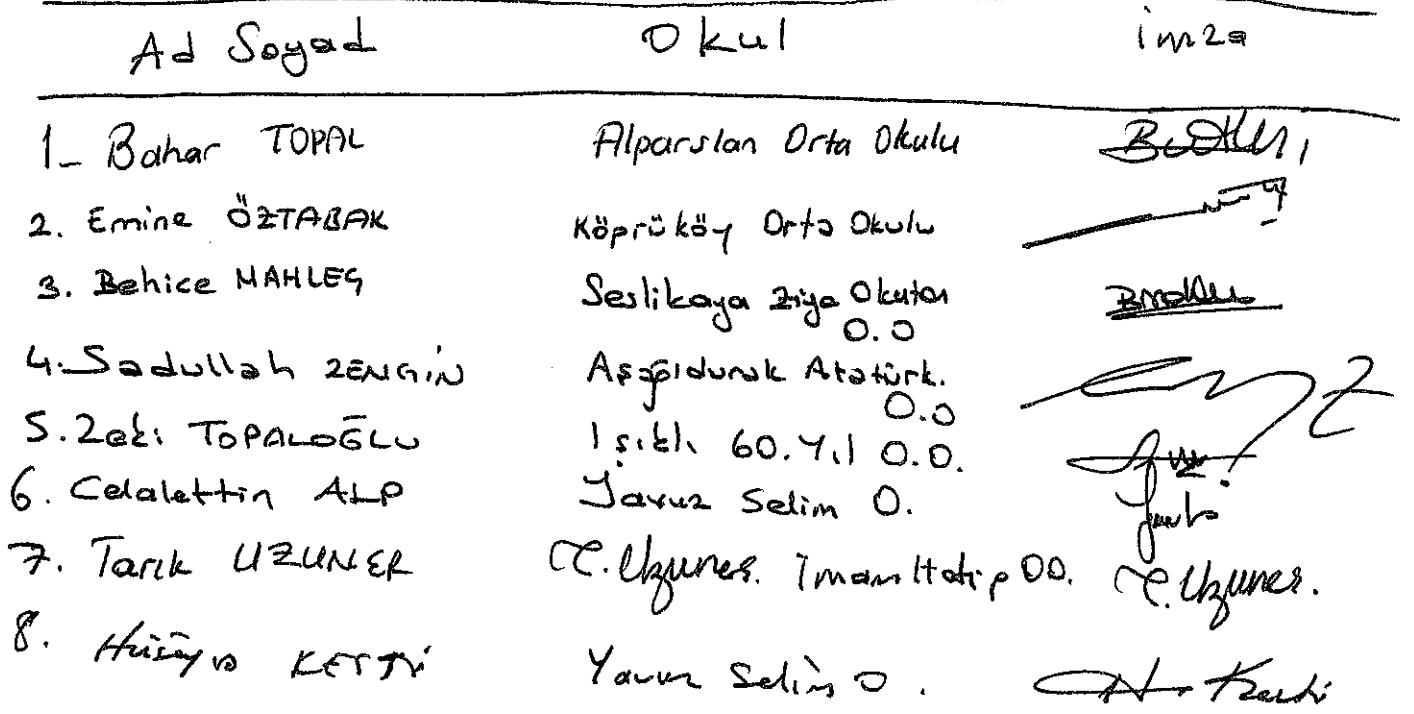 Ad Soyad Okul imza
1_ Bahar TOPAL Alparslan Orta Okulu
2. Emine ÖZTABAK Köprüköy Orta Okulu
3. Behice MAHLEÇ Seslikaya Ziya Okutan
O.O
4. Sadullah ZENGİN Aşağıdurak Atatürk.
O.O
5. Zeki TOPALOĞLU Işıklı 60. Yıl O.O.
6. Celalettin ALP Yavuz Selim O.
7. Tarık UZUNER T. Uzuner. İmam Hatip OO. T. Uzuner.
8. Hüseyin Yavuz Selim O.